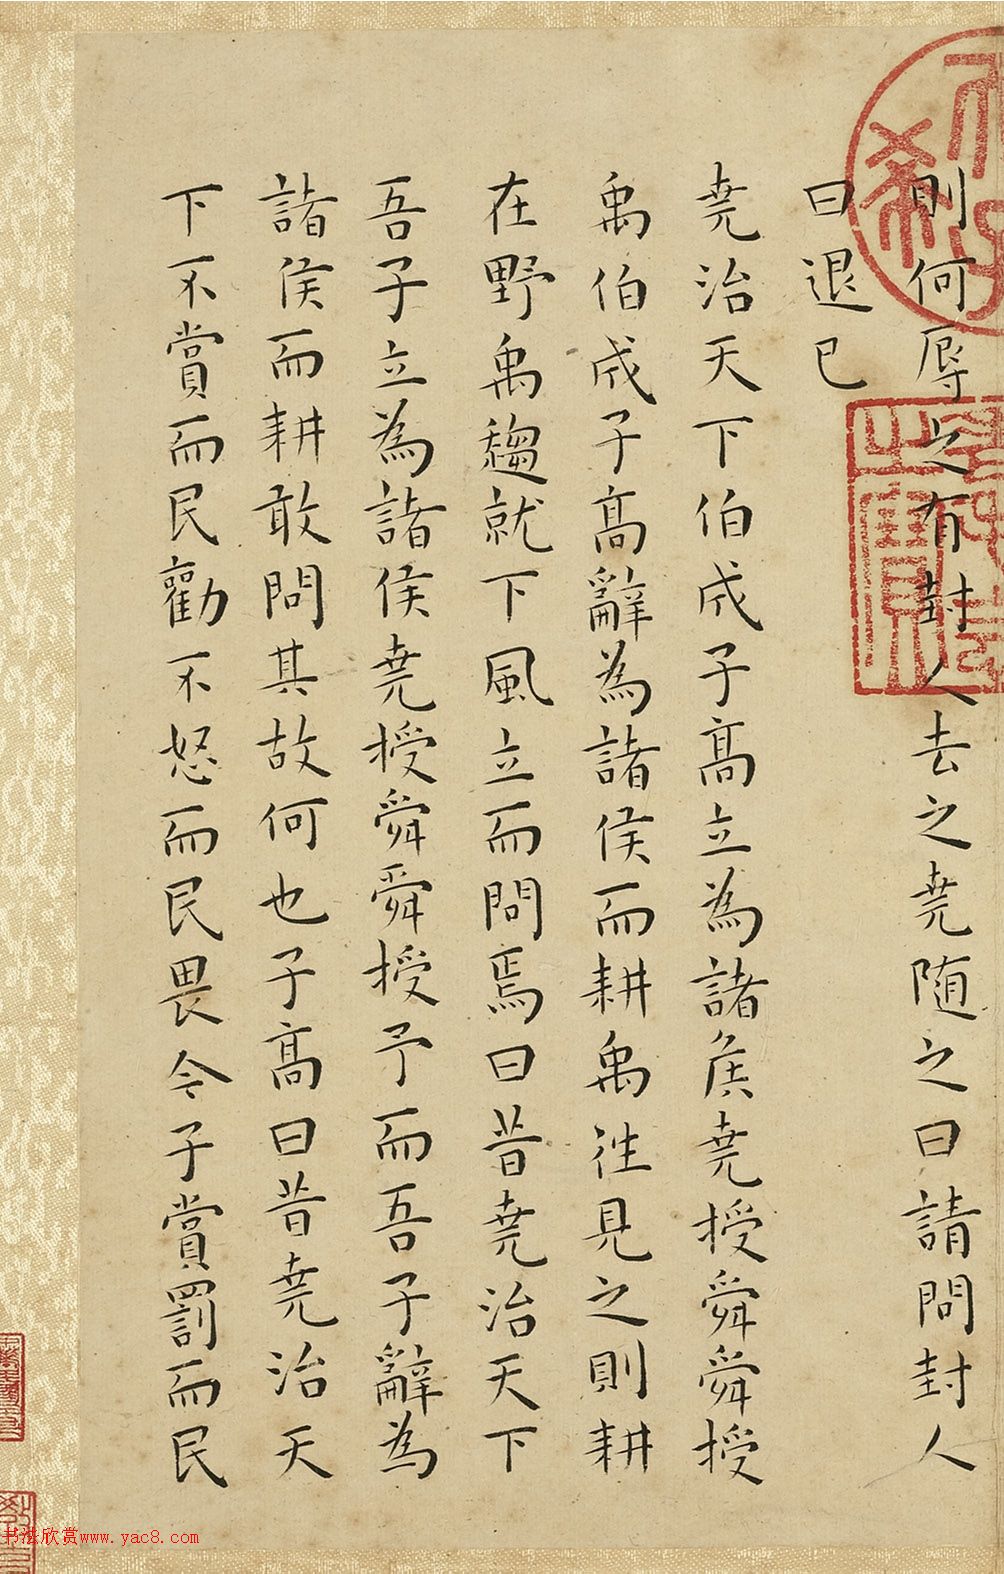 則何辱之有封人去之堯隨之曰請問封人
曰退已
堯治天下伯成子高立為諸侯堯授舜舜授
禹伯成子高辭為諸侯而耕禹往見之則耕
在野禹趨就下風立而問焉曰昔堯治天下
吾子立為諸侯堯授舜舜授予而吾子辭為
諸侯而耕敢問其故何也子高曰昔堯治天
下不賞而民勸不怒而民畏今子賞罰而民
书法欣赏www.yac8.com